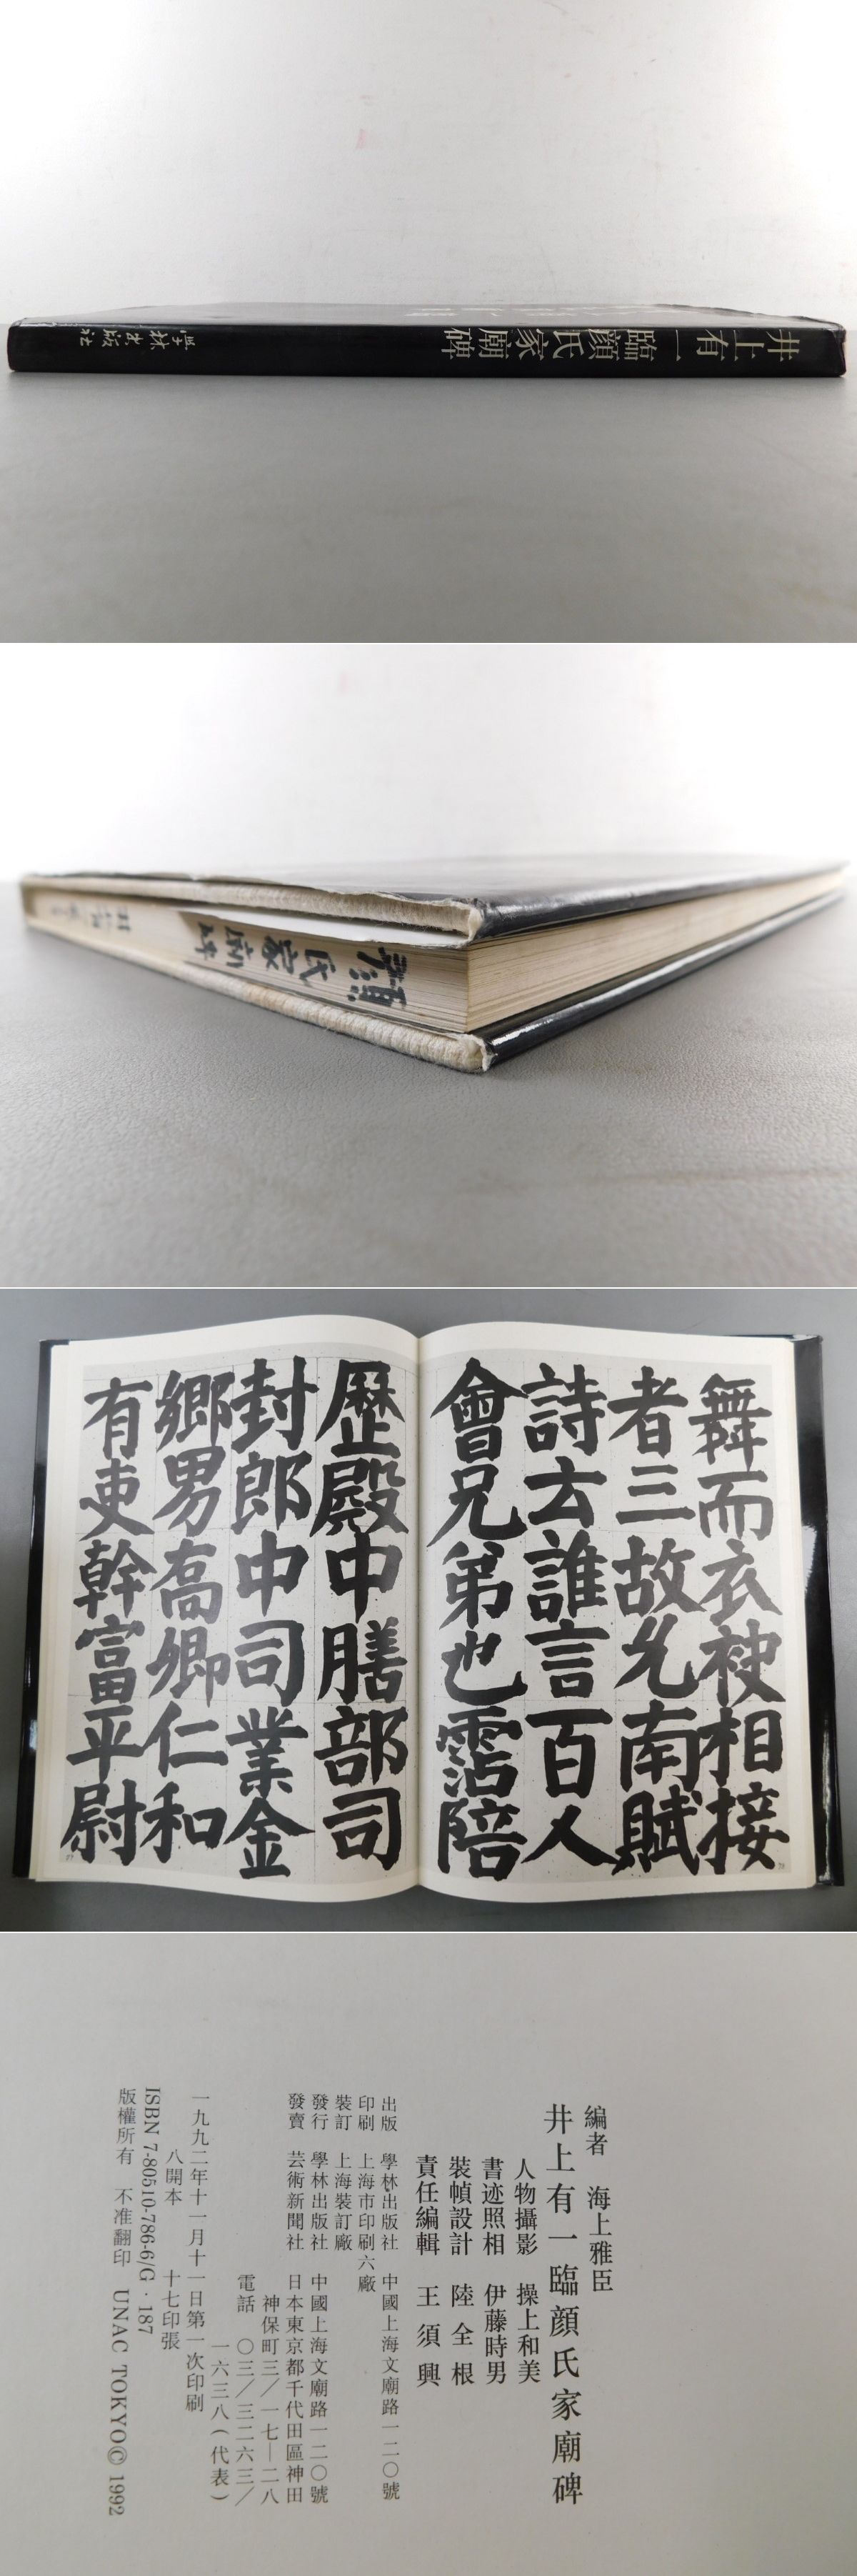 井上有一臨顏氏家廟碑
学林出版社
顏氏家廟碑
舞而衣袂相接
者三故允南賦
詩云誰言百人
會兄弟也霑陪
歷殿中膳部司
封郎中司業金
鄉男高卿仁和
有吏幹富平尉
編者 海上雅臣
井上有一臨顏氏家廟碑
人物攝影 操上和美
書迹照相 伊藤時男
裝幀設計 陸全根
責任編輯 王須興
出版 學林出版社 中國上海文廟路一二〇號
印刷 上海市印刷六廠
裝訂 上海裝訂廠
發行 學林出版社 中國上海文廟路一二〇號
發賣 芸術新聞社 日本東京都千代田區神田
神保町三/一七—二八
電話 〇三/三二六三/
一六三八(代表)
一九九二年十一月十一日第一次印刷
八開本 十七印張
ISBN 7-80510-786-6/G·187
版權所有 不准翻印 UNAC TOKYO© 1992